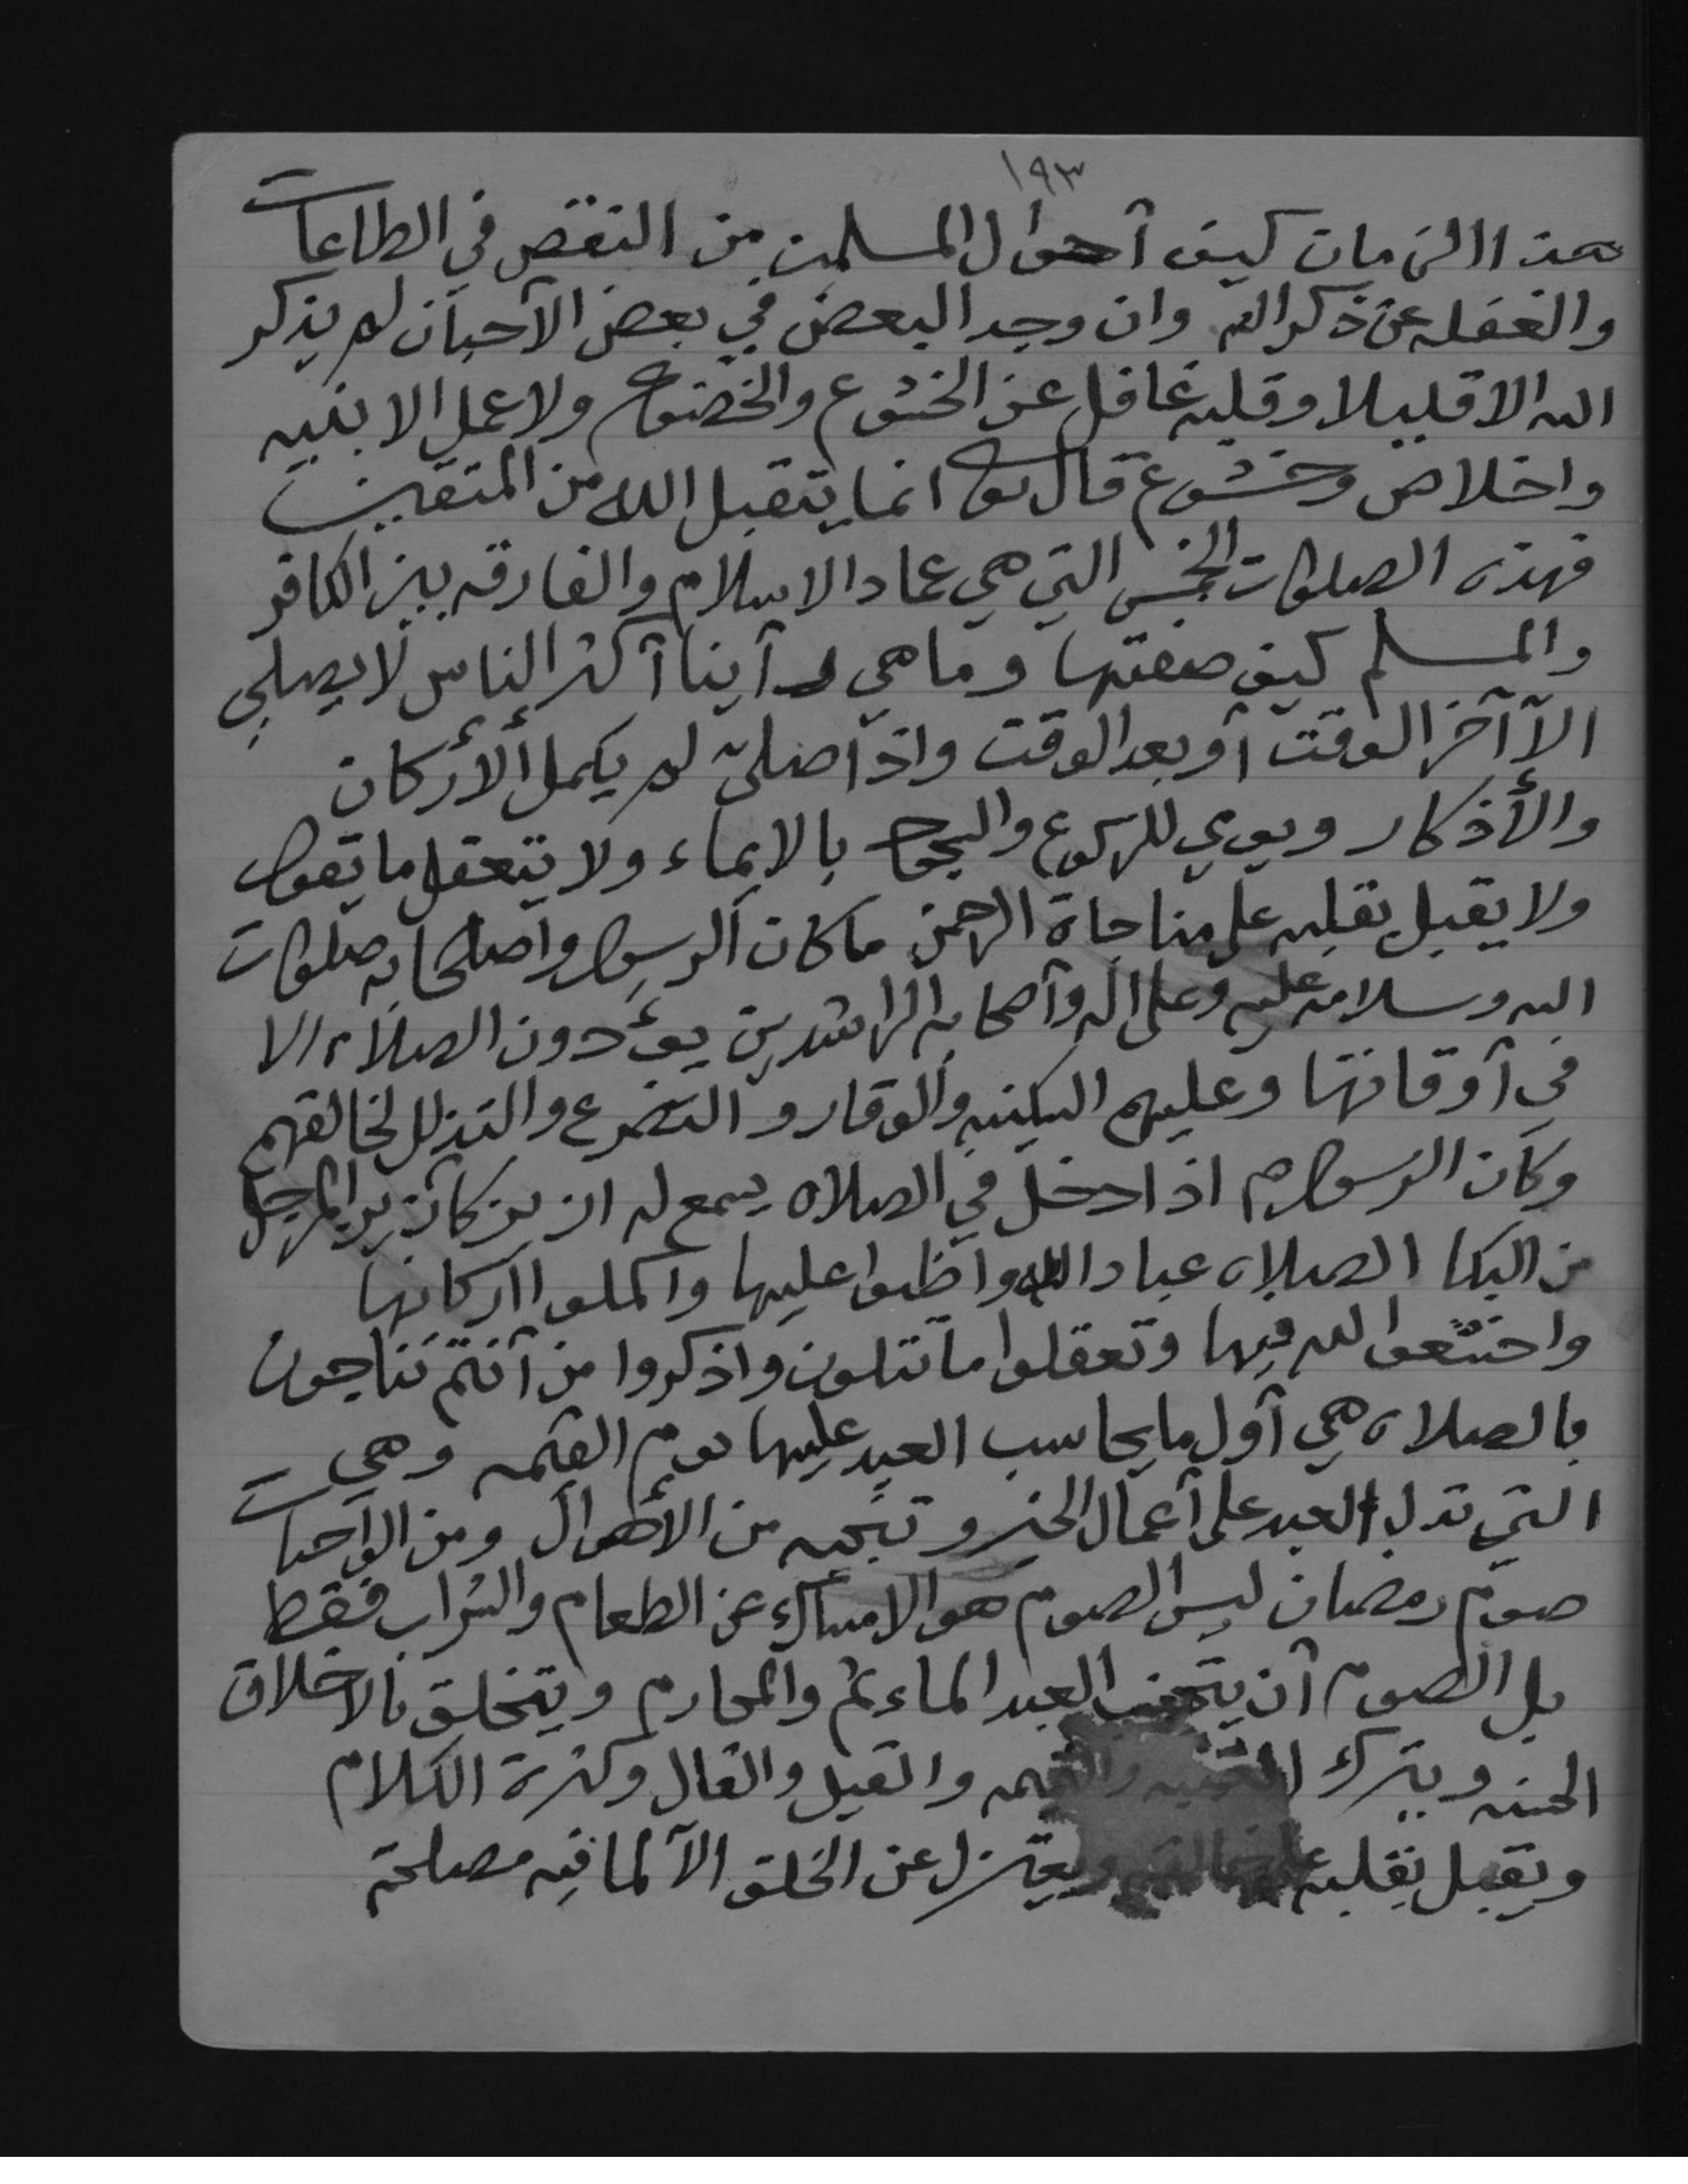 ١٩٣
هذا الزمان كيف آحوال المسلمين من النقص في الطاعات
والغفله عن ذكر الله وان وجد البعض في بعض الآحيان لم يذكر
الله الا قليلا وقلبه غافل عن الخشوع والخضوع ولا عمل الا بنيه
واخلاص وخشوع قال تعا انما يتقبل الله من المتقين
فهذه الصلوات الخمس التي هي عماد الاسلام والفارقه بين الكافر
والمسلم كيف صفتها وما هي رآينا آكثر الناس لا يصلي
الآ آخر الوقت آو بعد الوقت واذآ صلى لم يكمل الأركان
والأذكار ويومي للركوع والسجود بالايماء ولا يتعقل ما يقول
ولا يقبل بقلبه على مناجاة الرحمن ما كان الرسول وآصحابه صلوات
الله وسلامه عليه وعلى اله وآصحابه الراشدين يؤدون الصلاه الا
في آوقاتها وعليهم السكينه والوقار والتضرع والتذلل لخالقهم
وكان الرسول م اذا دخل في الصلاه يسمع له ازيز كآزيز المرجل
من البكا الصلاه عباد الله واظبوا عليها واكملوا آركانها
واخشعوا لله فيها وتعقلوا ما تتلون واذكروا من آنتم تناجون
بالصلاه هي آول ما يحاسب العبد عليها يوم القيمه وهي
التي تدل العبد على آعمال الخير وتنجيه من الأهوال ومن الواجبات
صوم رمضان ليس الصوم هو الامساك عن الطعام والشراب فقط
بل الصوم آن يتجنب العبد الماءثم والمحارم ويتخلق بالاخلاق
الحسنه ويترك الغيبه والنميمه والقيل والقال وكثرة الكلام
ويقبل بقلبه على خالقه ويعتزل عن الخلق الآ لما فيه مصلحة